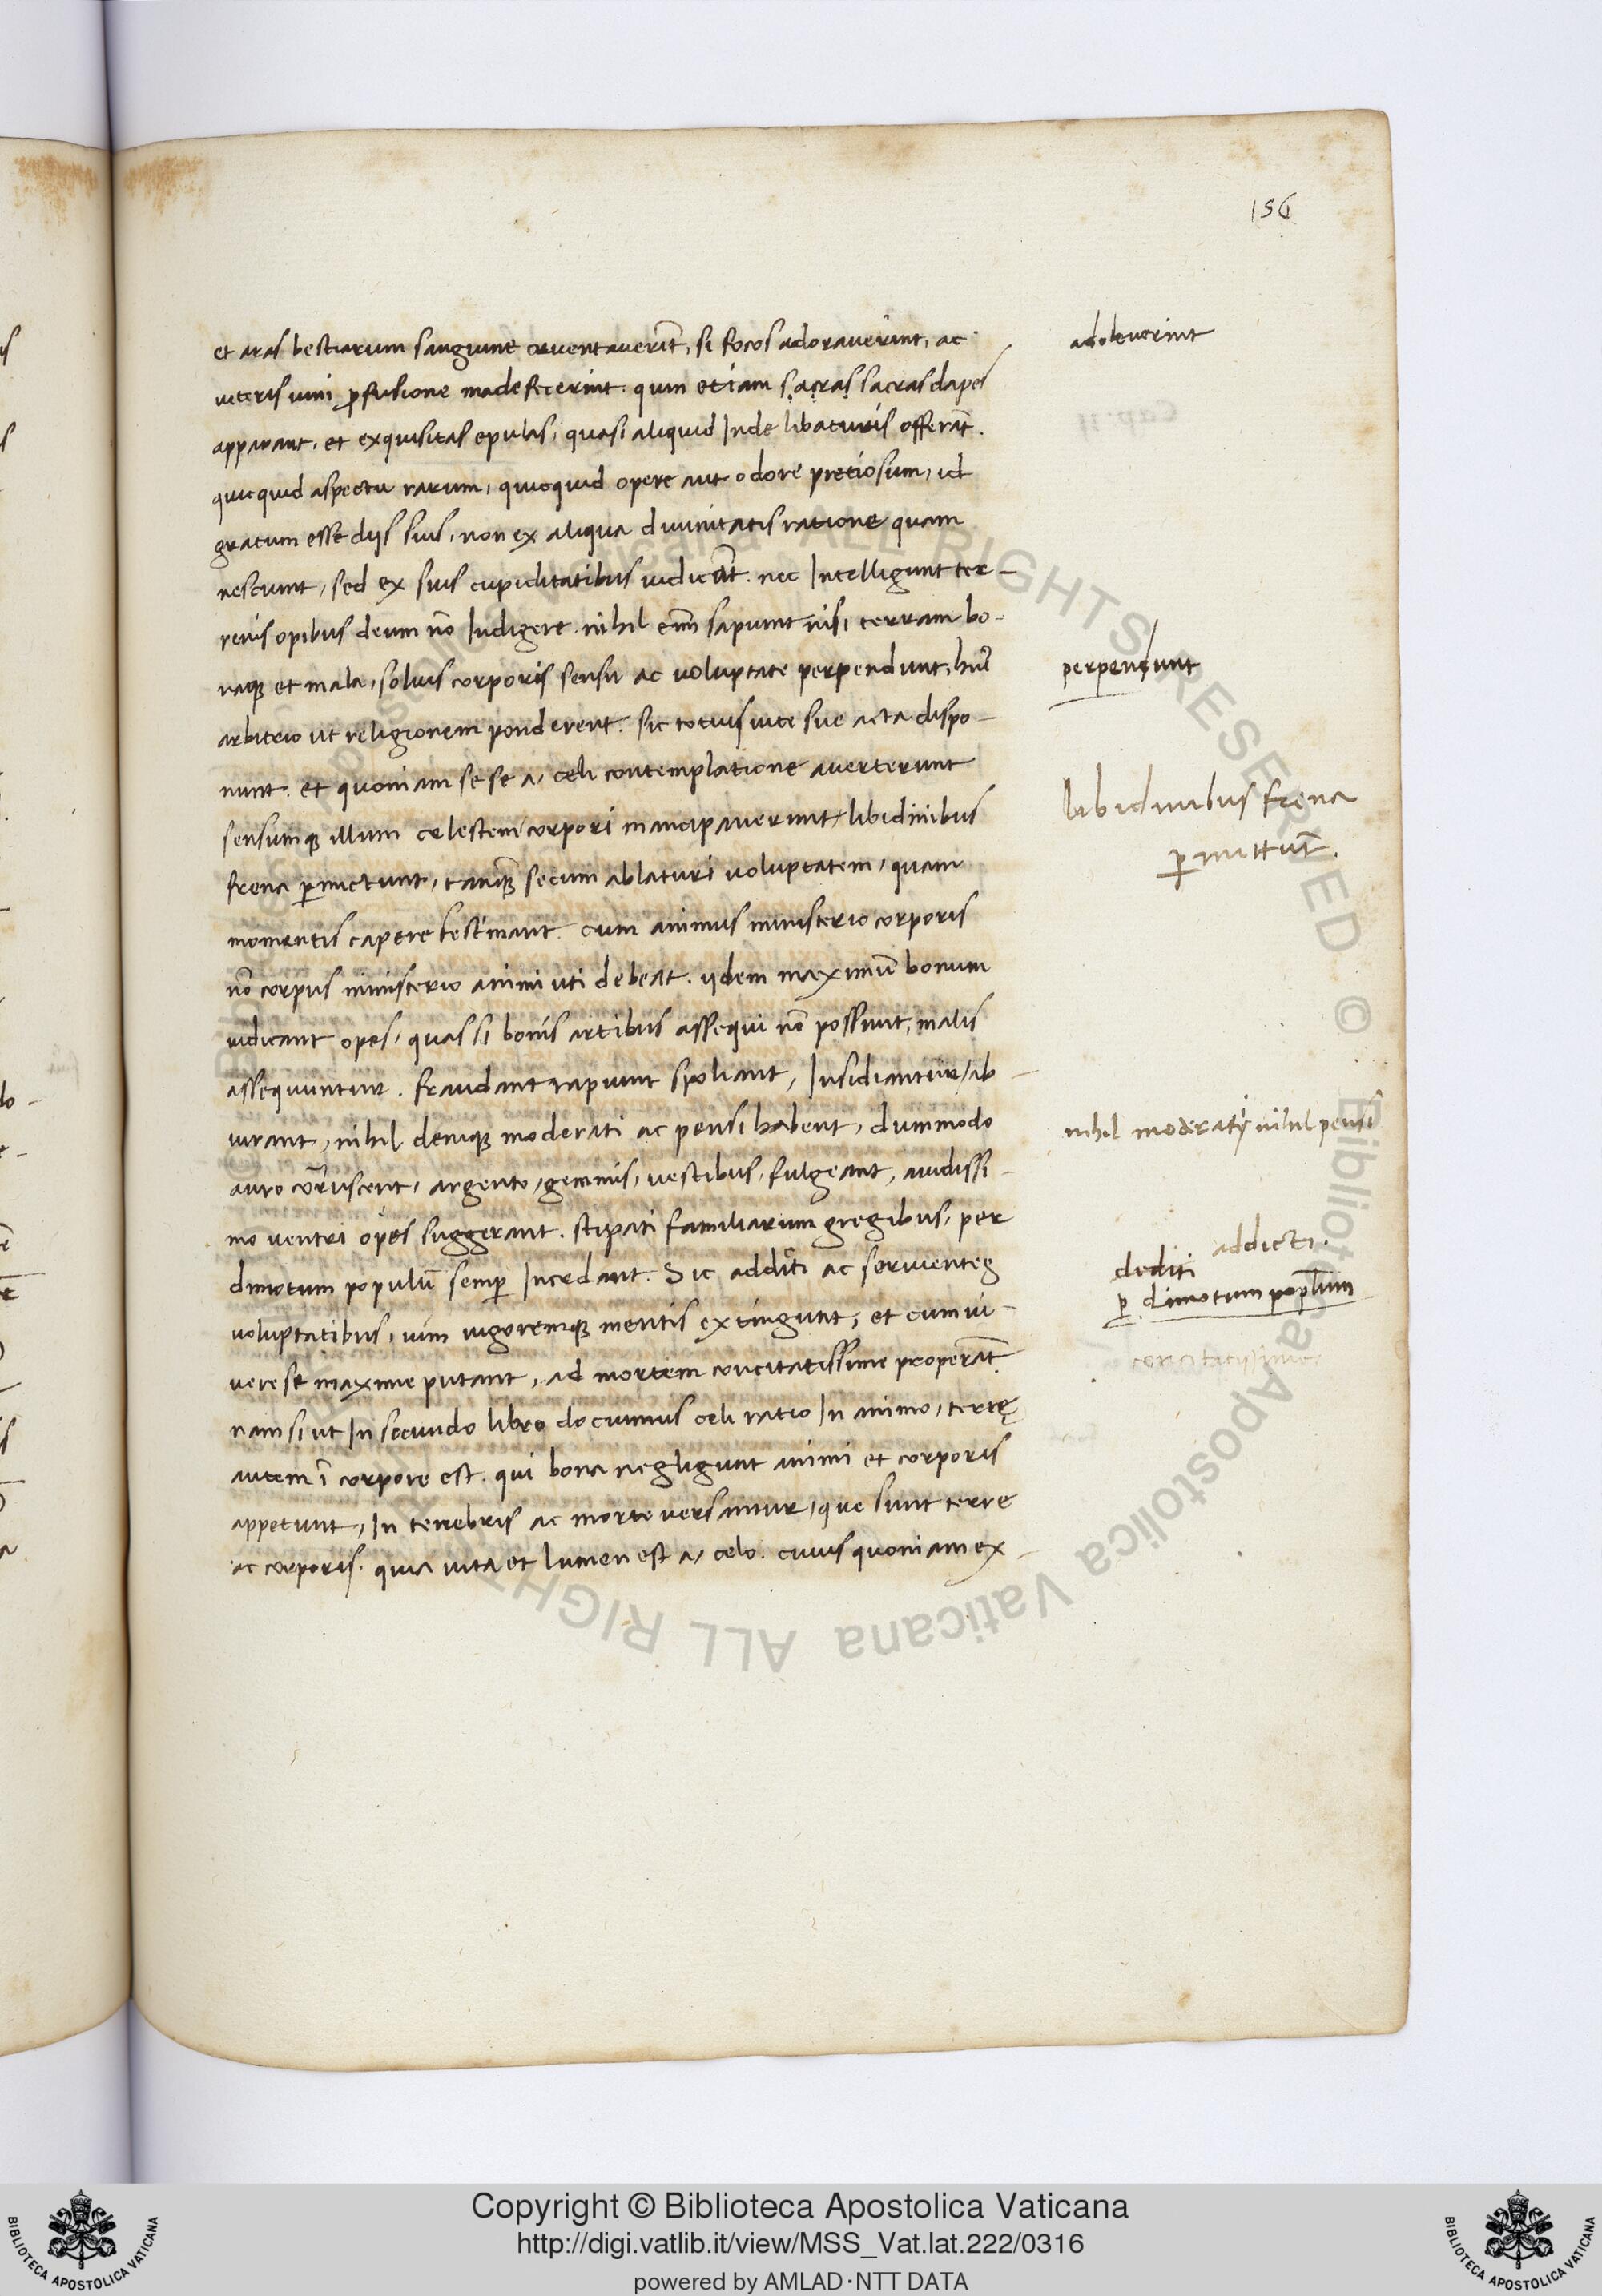 156
et aras bestiarum sanguine cruentauerīt, si focos adorauerint, ac
ueteris uini ꝓfusione madefecerint. quin etiam sacras sacras dapes
apparant, et exquisitas epulas, quasi aliquid Inde libaturis offerāt.
quicquid aspectu rarum, quicquid opere aut odore pretiosum, id
gratum esse dijs suis, non ex aliqua diuinitatis ratione quam
nesciunt, sed ex suis cupiditatibus iudicāt. nec Intelligunt ter-
renis opibus deum nō Indigere. nihil enī sapiunt nisi terram bo-
naqꝫ et mala, solius corporis sensu ac uoluptate perpendunt,
arbitrio ut religionem ponderent. sic totius uite sue acta dispo-
nunt. et quoniam se se a, celi contemplatione auerterunt
sensumqꝫ illum celestem corpori mancipauerunt, libidinibus
frena ꝑmictunt, tamqꝫ secum ablaturi uoluptatem, quam
momentis capere festinant. cum animus ministerio corporis
nō corpus ministerio animi uti debeat. ijdem maximū bonum
iudicant opes, quas si bonis artibus assequi nō possunt, malis
assequuntur. fraudant rapiunt spoliant, Insidiantur, ab-
iurant, nihil deniqꝫ moderati ac pensi habent, dummodo
auro coruscent, argento, gemmis, uestibus, fulgeant, auidissi-
mo uentri opes suggerant. stipati familiarum gregibus, per
dimotum populū semꝑ Incedant. Sic additi ac seruientes
uoluptatibus, uim uigoremqꝫ mentis extingunt, et cum ui-
uere se maxime putant, ad mortem concitatissime properāt.
nam si ut In secundo libro docuimus celi ratio In animo, terrę
autem ī corpore est. qui bona negligunt animi et corporis
appetunt, In tenebris ac morte uersantur, que sunt terre
ac corporis. quia uita et lumen est a, celo. cuius quoniam ex-
adoleuerint
perpendunt
libidinibus frena
ꝑmittūt.
nihil moderati nihil pensi
addicti.
dediti
ꝑ dimotum poplum
concitatissime
Copyright © Biblioteca Apostolica Vaticana
http://digi.vatlib.it/view/MSS_Vat.lat.222/0316
powered by AMLAD·NTT DATA
BIBLIOTECA APOSTOLICA VATICANA
BIBLIOTECA APOSTOLICA VATICANA